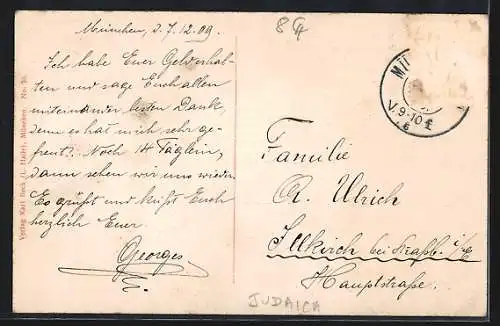 München, d. 7.12.09.
Ich habe Euer Geld erhal-
ten und sage Euch allen
miteinander besten Dank,
denn es hat mich sehr ge-
freut. Noch 14 Täglein,
dann sehen wir uns wieder.
Es grüßt und küßt Euch
herzlich Euer
Georges
Verlag Karl Beck (L. Halet), München. No. 30.
MÜ
V. 9-10
Familie
A. Ulrich
Illkirch bei Straßb. i/E
Hauptstraße.
JUDAICA